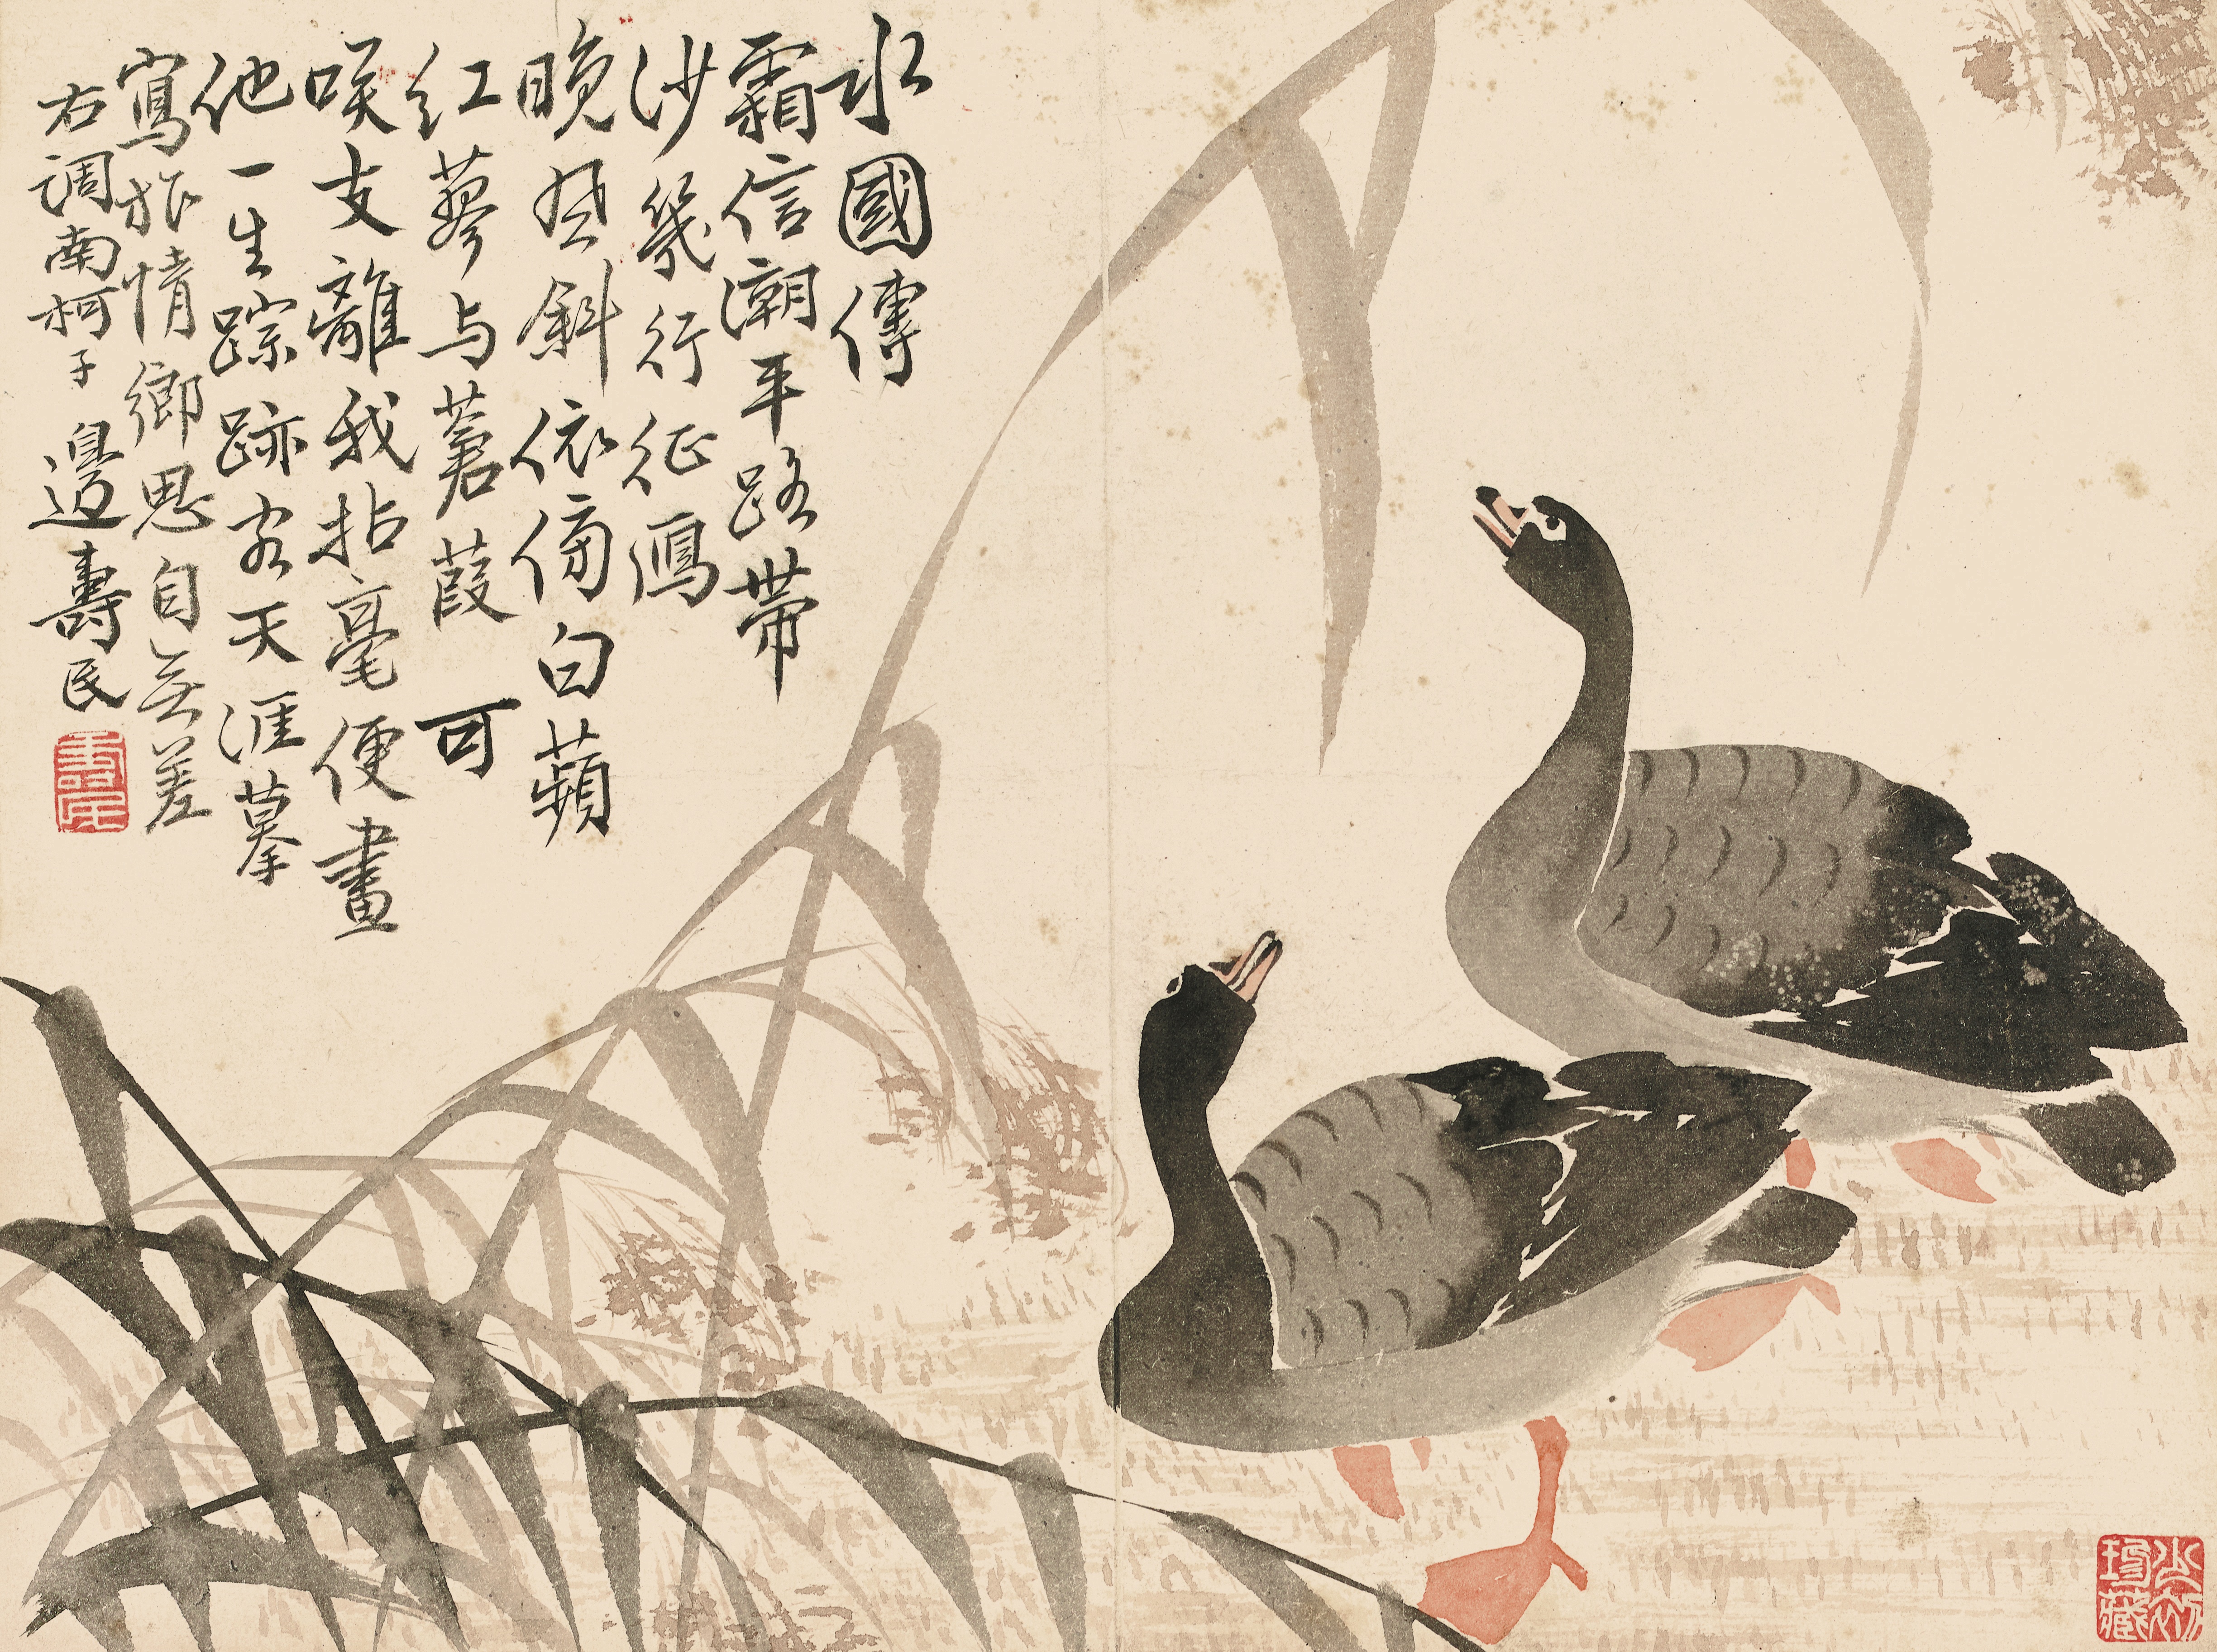 水國傳
霜信潮平路带
沙幾行征鴻
晚風斜依傍白蘋
红蓼与蒹葭可
唉支離我拈毫便畫
他一生踪跡客天涯摹
寫旅情鄉思自無差
右调南柯子 邊壽民
壽民